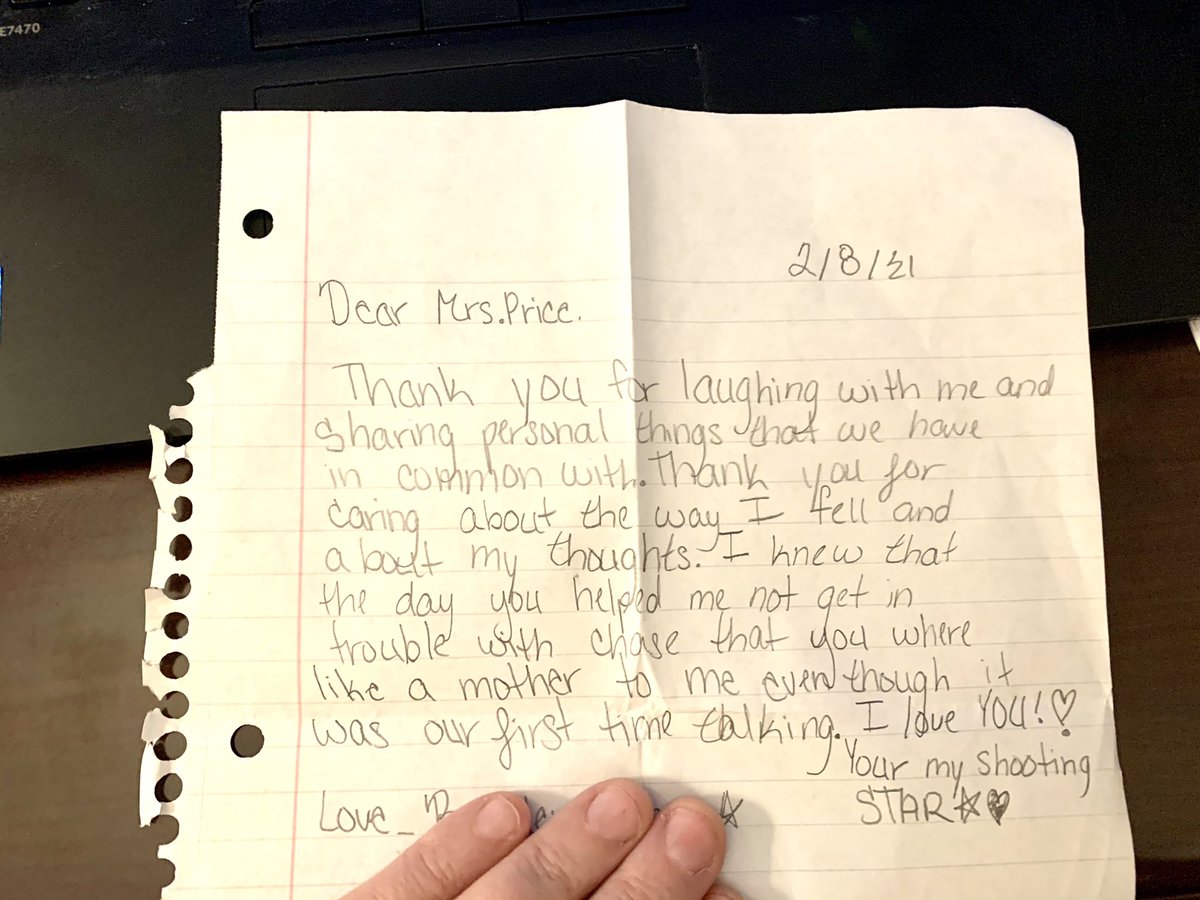 E7470
2/8/21
Dear Mrs. Price.
Thank you for laughing with me and
Sharing personal things that we have
in common with. Thank you for
caring about the way I fell and
about my thoughts. I knew that
the day you helped me not get in
trouble with chase that you where
like a mother to me even though it
was our first time talking. I love YOU!♡
Your my shooting
Love_
STAR☆♥